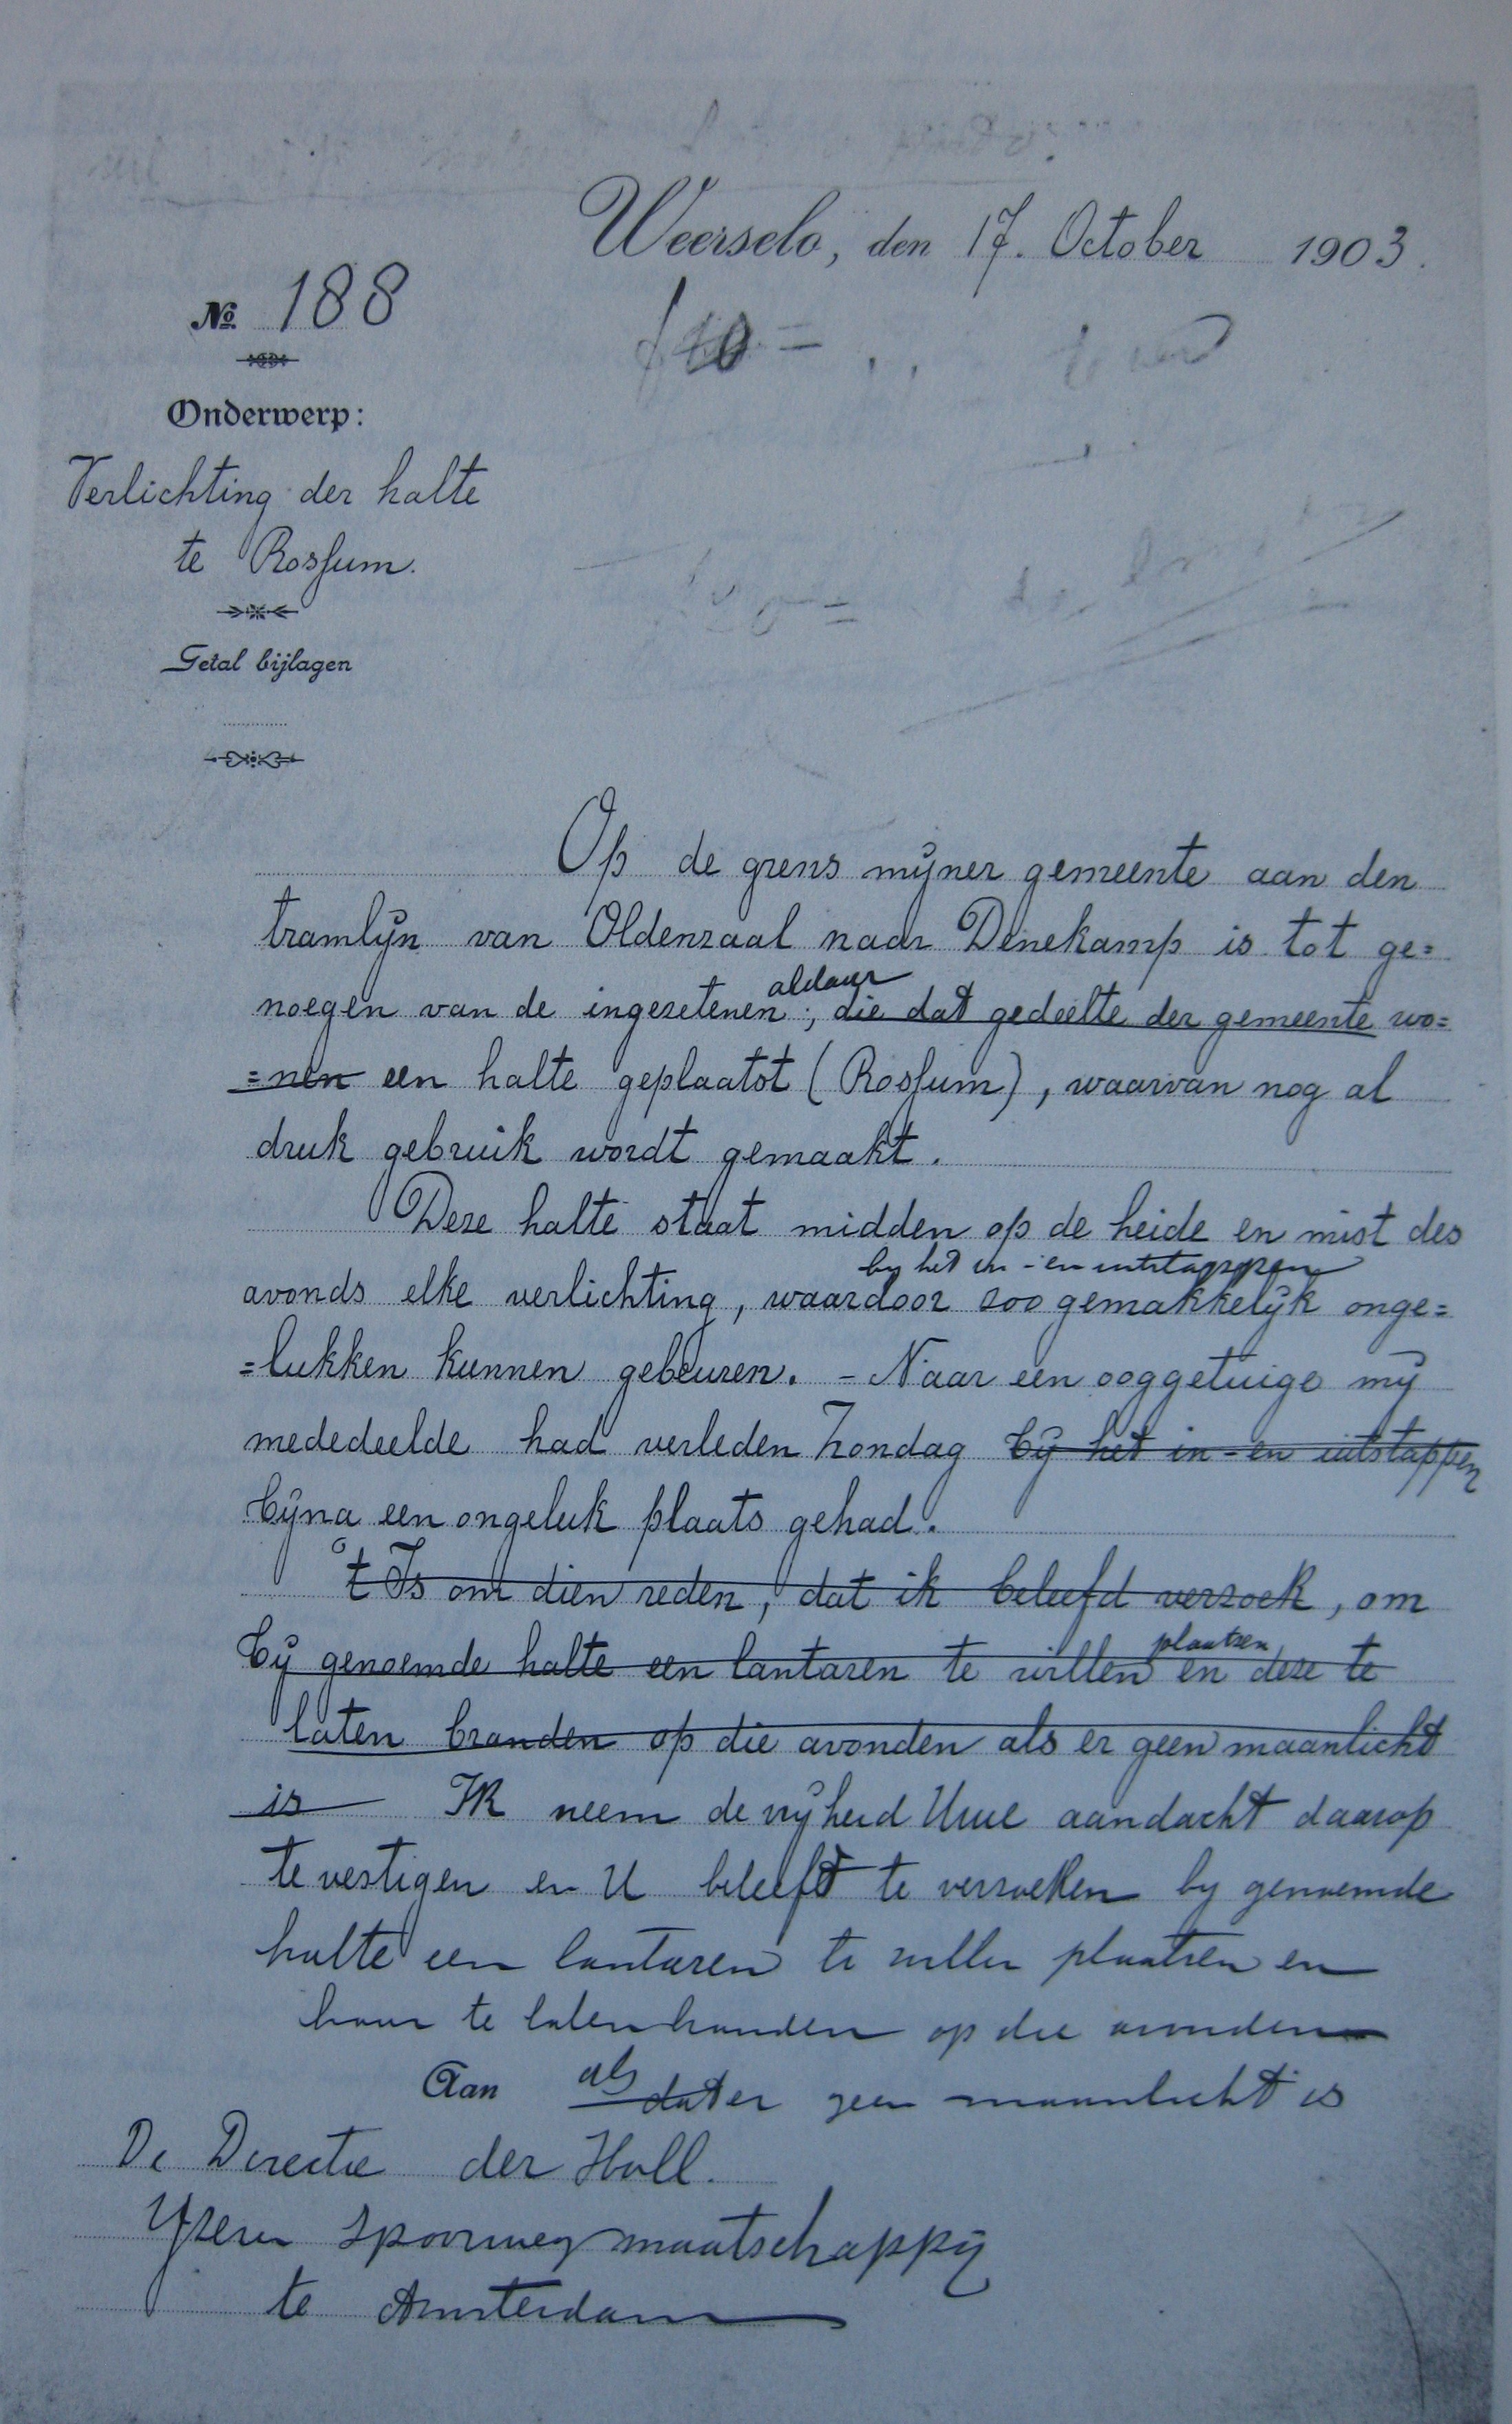 Weerselo, den 17. October 1903.
No. 188
Onderwerp:
Verlichting der halte
te Rossum.
Getal bijlagen
Op de grens mijner gemeente aan den
tramlijn van Oldenzaal naar Denekamp is tot ge=
aldaar
noegen van de ingezetenen, die dat gedeelte der gemeente wo=
=nen een halte geplaatst (Rossum), waarvan nog al
druk gebruik wordt gemaakt.
Deze halte staat midden op de heide en mist des
by het in- en uitstappen
avonds elke verlichting, waardoor zoo gemakkelijk onge=
=lukken kunnen gebeuren. - Naar een ooggetuige mij
mededeelde had verleden Zondag bij het in- en uitstappen
bijna een ongeluk plaats gehad.
't Is om dien reden, dat ik beleefd verzoek, om
plaatsen
bij genoemde halte een lantaren te willen en deze te
laten branden op die avonden als er geen maanlicht
is Ik neem de vrijheid Uwe aandacht daarop
te vestigen en U beleefd te verzoeken by genoemde
halte een lantaren te willen plaatsen en
haar te laten branden op die avonden
Aan als dat er geen maanlicht is
De Directie der Holl.
Yzeren Spoorweg maatschappij
te Amsterdam